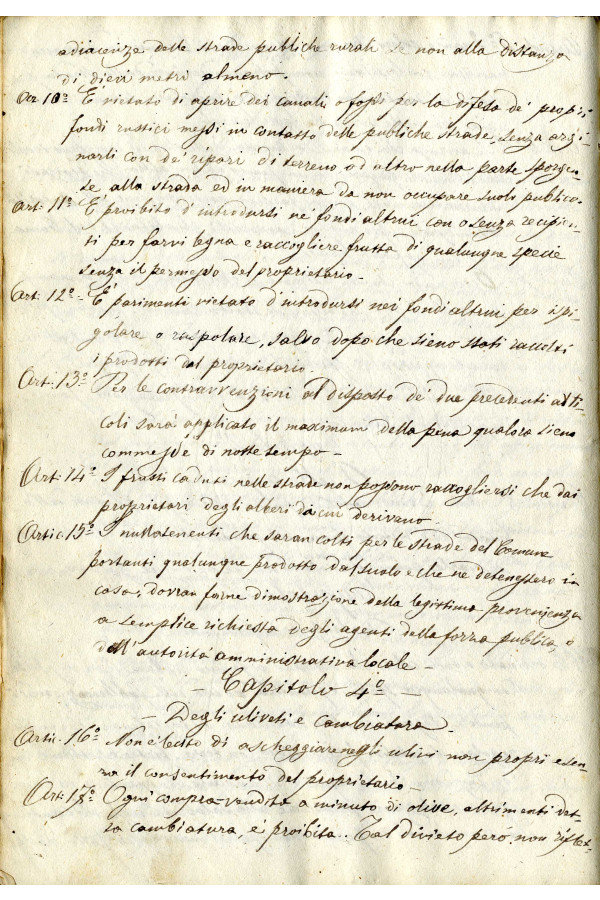 adiacenze delle strade publiche rurali se non alla distanza
di dieci metri almeno.
Ar. 10º È vietato di aprire dei canali o fossi per la difesa de' propii
fondi rustici messi in contatto delle publiche strade, senza argi-
narli con de' ripari di terreno od altro nella parte sporgen-
te alla strada ed in maniera da non occupare suolo publico.
Art: 11º È proibito d'introdursi ne' fondi altrui con o senza recipien-
ti per farvi legna e raccogliere frutta di qualunque specie
senza il permesso del proprietario.
Art: 12º È parimenti vietato d'introdursi nei fondi altrui per spi-
golare o raspolare, salvo dopo che sieno stati raccolti
i prodotti dal proprietario.
Art: 13º Per le contravvenzioni al disposto de' due precedenti arti
coli sarà applicato il maximum della pena qualora sieno
commesse di notte tempo -
Art: 14º I frutti caduti nelle strade non possono raccogliersi che dai
proprietari degli alberi da cui derivano -
Artic. 15º I nullatenenti che saran colti per le strade del Comune
portanti qualunque prodotto dal suolo e che ne detenessero in
casa, dovran farne dimostrazione della legittima provenienza
a semplice richiesta degli agenti della forza publica, o
dell'autorità amministrativa locale -
- Capitolo 4º -
- Degli uliveti e cambiatura -
Artic. 16º Non è lecito di ascheggiare negli ulivi non propri e sen-
za il consentimento del proprietario -
Art: 17º Ogni compra-vendita a minuto di olive, altrimenti det-
ta cambiatura, è proibita. Tal divieto però non riflet-